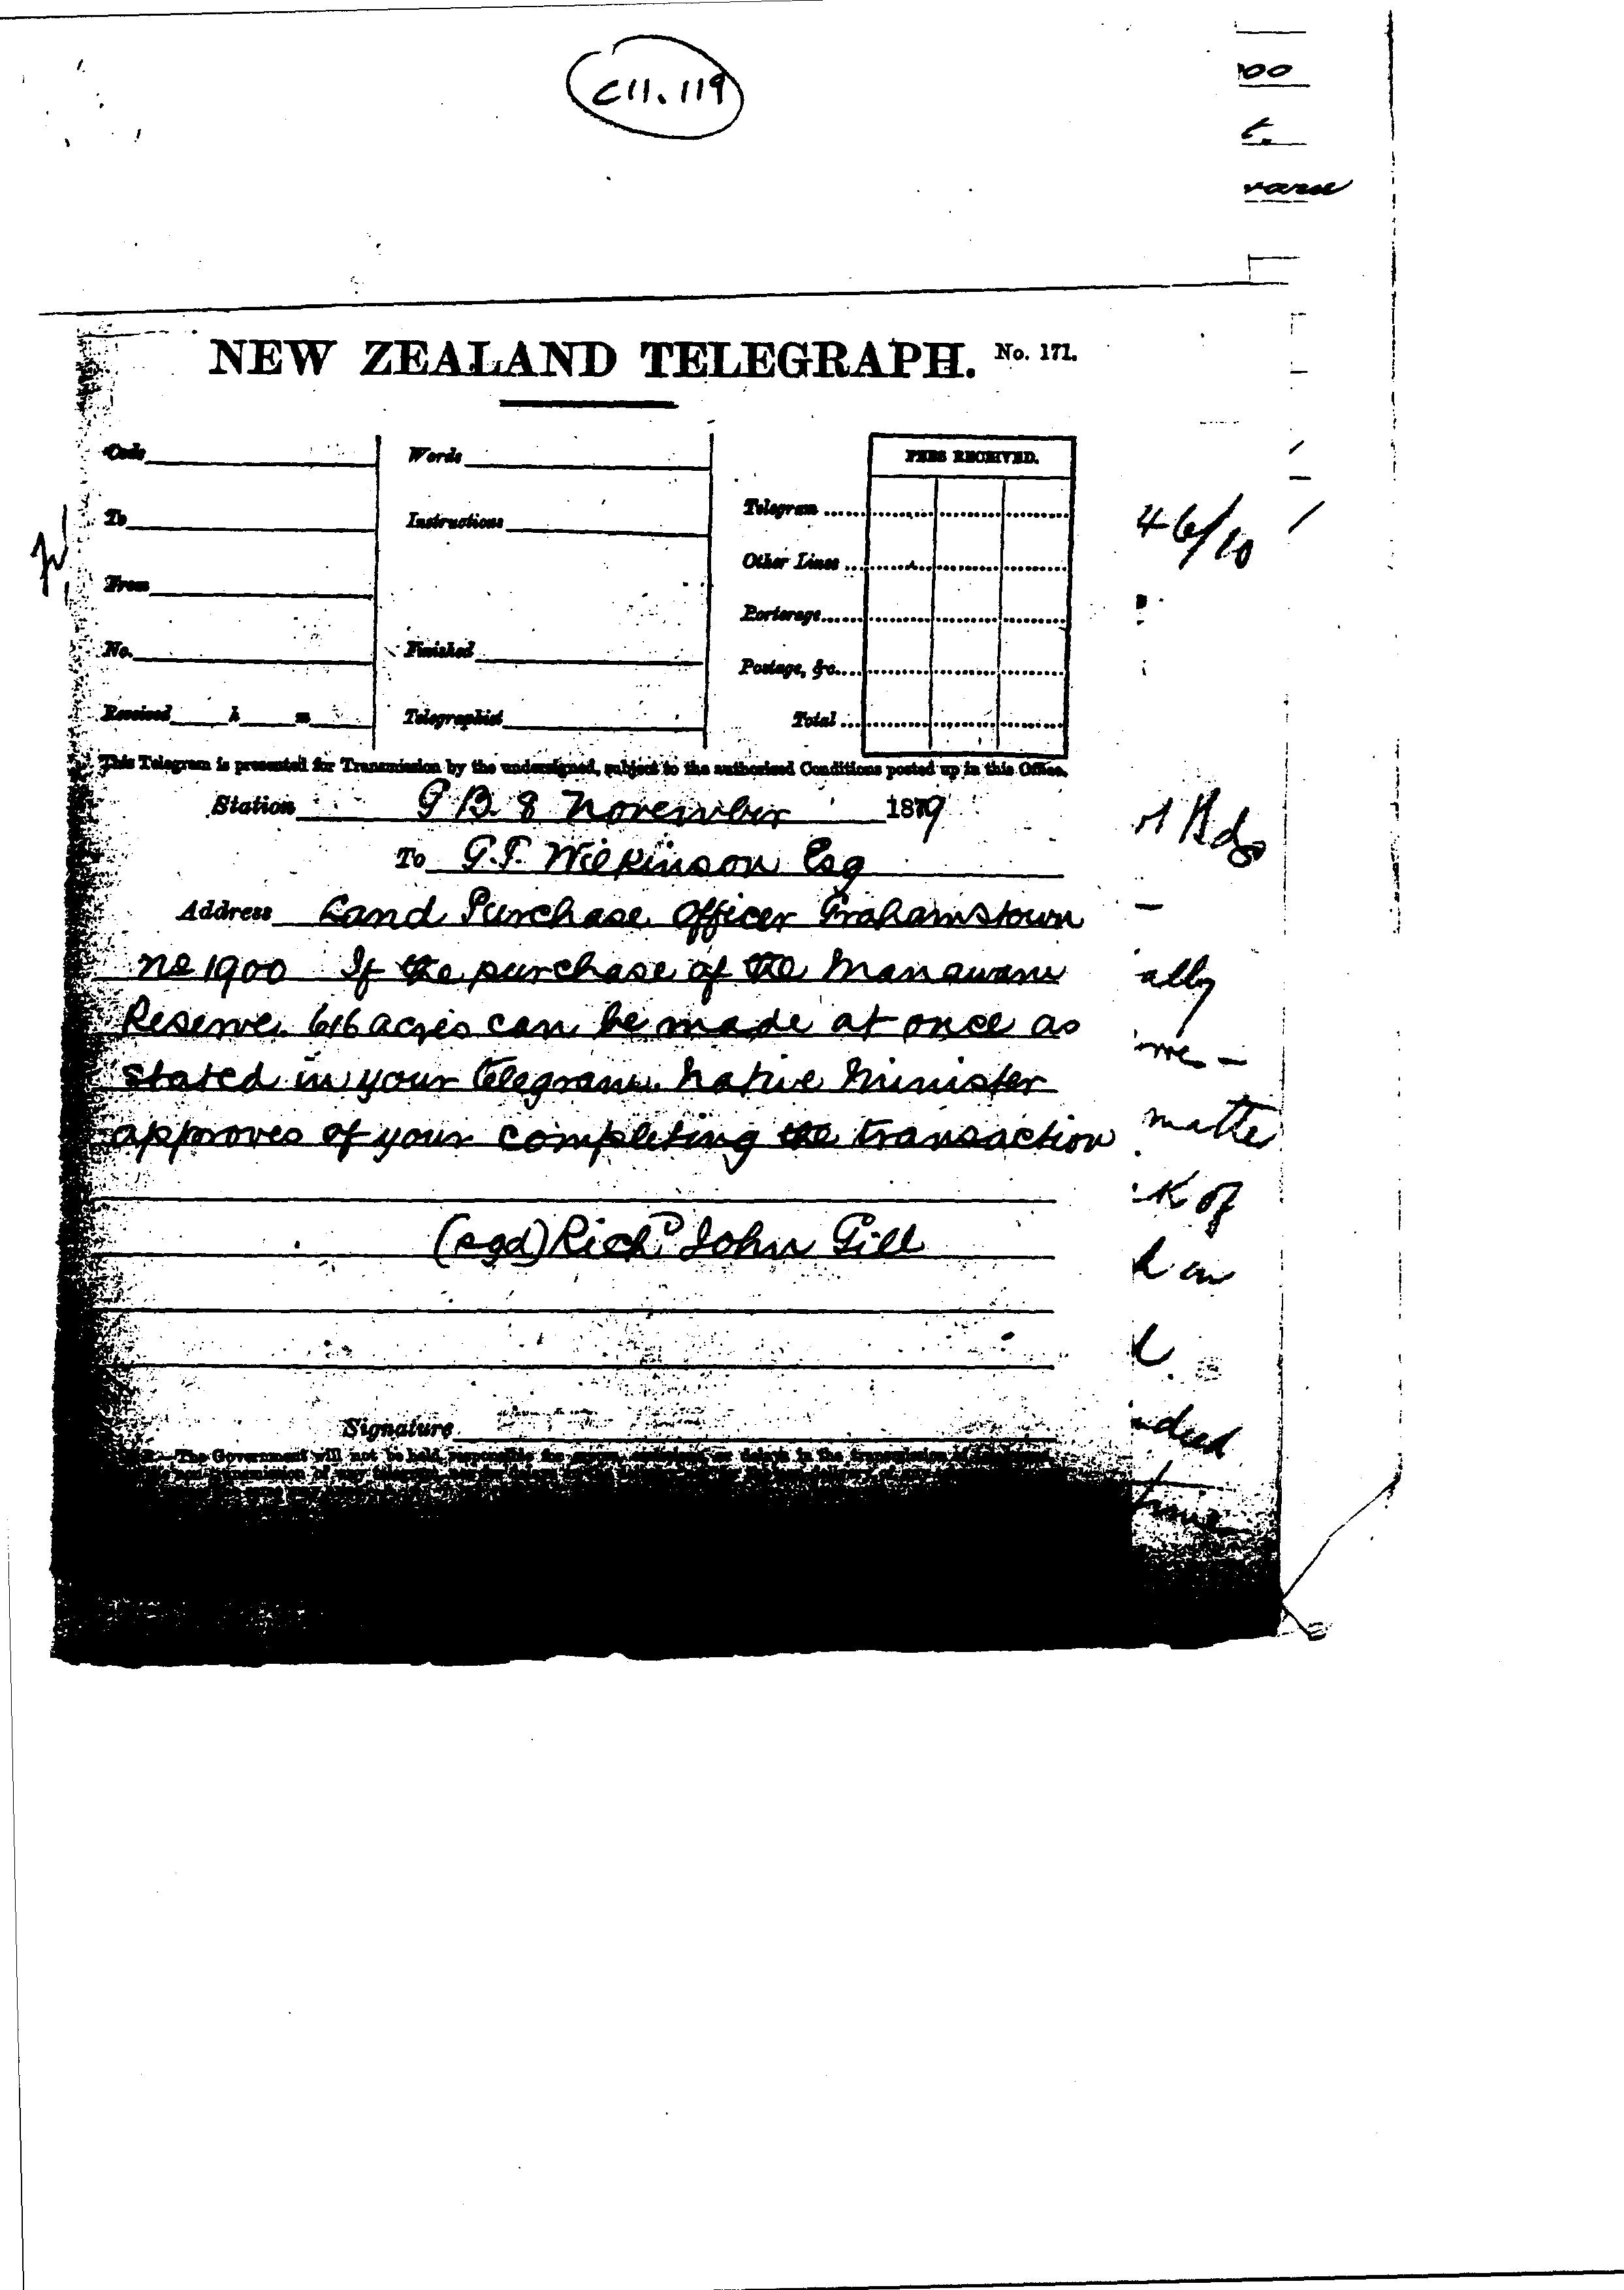 C11.119
00
t.
NEW ZEALAND TELEGRAPH. No. 171.
Code Words FEES RECEIVED.
To Instructions Telegram
46/10
Other Lines
From
Porterage
No. Finished
Postage, &c.
Received h m Telegraphist Total
This Telegram is presented for Transmission by the undersigned, subject to the authorised Conditions posted up in this Office.
Station G B. 8 November 1879
To G.T. Wilkinson Esq
Address Land Purchase Officer Grahamstown
No 1900 If the purchase of the
Reserve 616 acres can be made at once as
stated in your telegram. Native Minister
approves of your completing the transaction
(sgd) Richd John Gill
Signature
The Government will not be held responsible for
ally
matte
k of
time